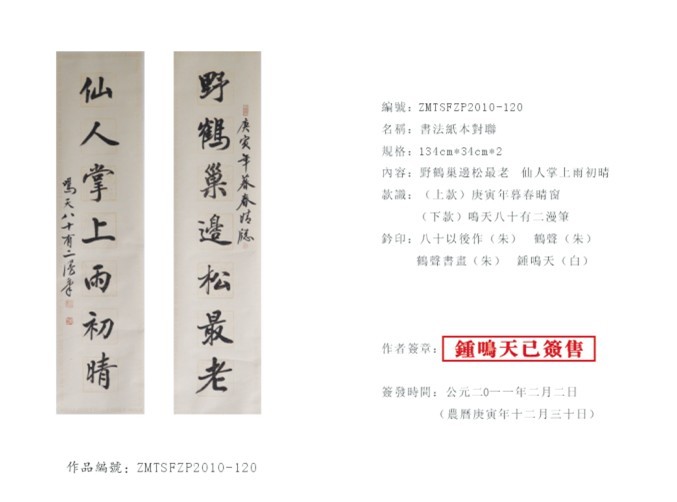 野鶴巢邊松最老
庚寅年暮春晴窗
仙人掌上雨初晴
鳴天八十有二漫筆
編號：ZMTSFZP2010-120
名稱：書法紙本對聯
規格：134cm*34cm*2
內容：野鶴巢邊松最老　仙人掌上雨初晴
款識：（上款）庚寅年暮春晴窗
（下款）鳴天八十有二漫筆
鈐印：八十以後作（朱）　鶴聲（朱）
鶴聲書畫（朱）　鍾鳴天（白）
作者簽章：鍾鳴天已簽售
簽發時間：公元二0一一年二月二日
（農曆庚寅年十二月三十日）
作品編號：ZMTSFZP2010-120